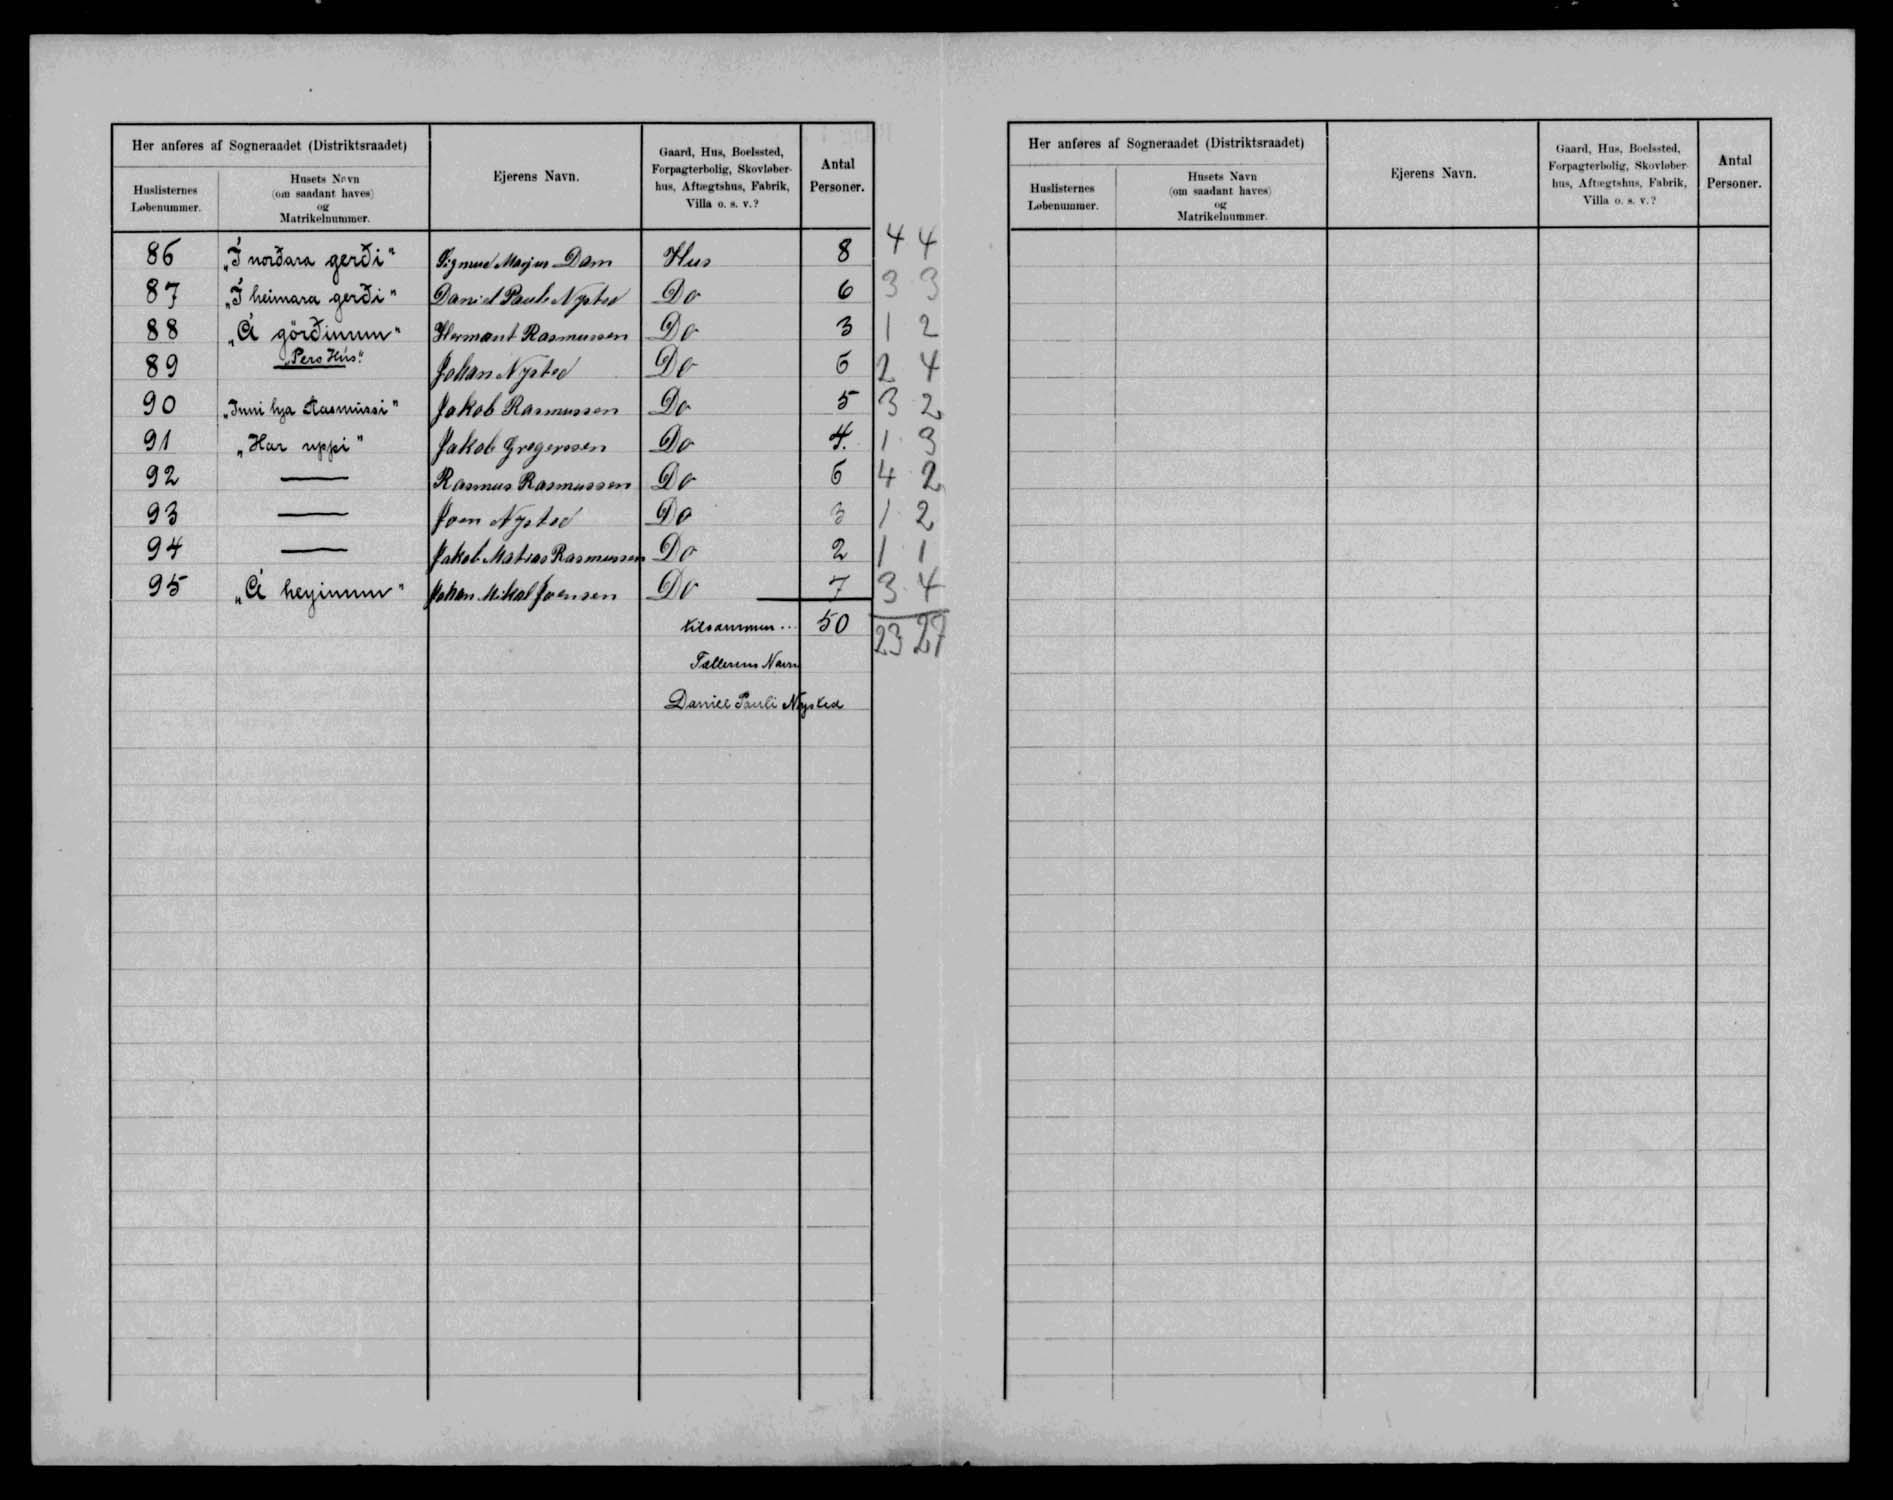 Her anføres af Sogneraadet (Distriktsraadet)
Huslisternes Løbenummer.
Husets Navn (om saadant haves) og Matrikelnummer.
Ejerens Navn.
Gaard, Hus, Boelssted, Forpagterbolig, Skovløberhus, Aftægtshus, Fabrik, Villa o. s. v.?
Antal Personer.
86 „Í norðara gerði" Sigmund Marjus Dam Hus 8 4 4
87 „Í heimara gerði" Daniel Pauli Nysted Do 6 3 3
88 „Á görðinum" Hermant Rasmussen Do 3 1 2
89 „Pers Hús" Johan Nysted Do 6 2 4
90 „Inni hja Rasmussi" Jakob Rasmussen Do 5 3 2
91 „Har uppi" Jakob Gregersen Do 4. 1 3
92 — Rasmus Rasmussen Do 6 4 2
93 — Joen Nysted Do 3 1 2
94 — Jakob Matias Rasmussen Do 2 1 1
95 „Á heyinum" Johan Mikal Joensen Do 7 3 4
tilsammen... 50 23 27
Tællerens Navn
Daniel Pauli Nysted
Her anføres af Sogneraadet (Distriktsraadet)
Huslisternes Løbenummer.
Husets Navn (om saadant haves) og Matrikelnummer.
Ejerens Navn.
Gaard, Hus, Boelssted, Forpagterbolig, Skovløberhus, Aftægtshus, Fabrik, Villa o. s. v.?
Antal Personer.